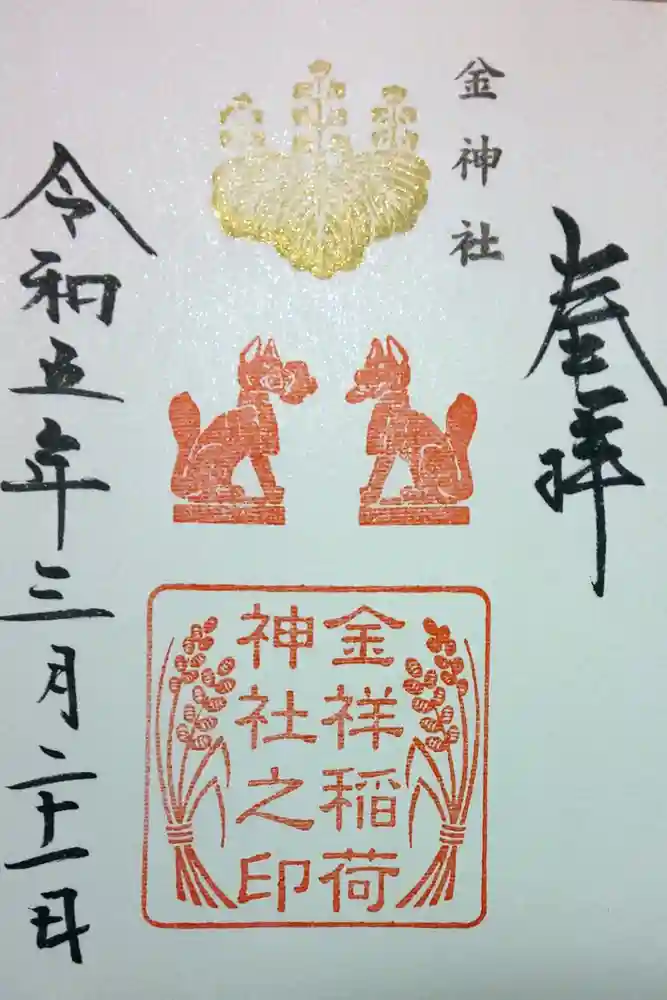 奉拝
金神社
金祥稲荷
神社之印
令和五年三月二十一日